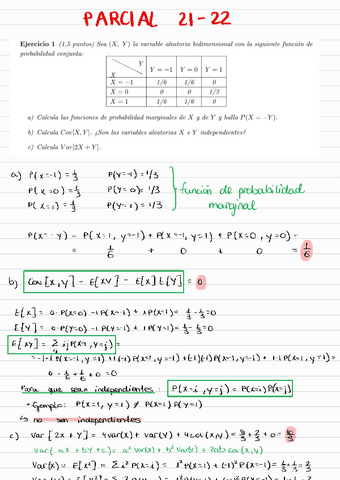 PARCIAL 21-22
Ejercicio 1 (1,5 puntos) Sea (X, Y) la variable aleatoria bidimensional con la siguiente función de
probabilidad conjunta:
Y
X Y = −1 Y = 0 Y = 1
X = −1 1/6 1/6 0
X = 0 0 0 1/3
X = 1 1/6 1/6 0
a) Calcula las funciones de probabilidad marginales de X y de Y y halla P(X = −Y).
b) Calcula Cov[X, Y]. ¿Son las variables aleatorias X e Y independientes?
c) Calcula Var[2X + Y].
a) P(X=-1) = 1/3 P(Y=-1) = 1/3
P(X=0) = 1/3 P(Y=0) = 1/3
P(X=1) = 1/3 P(Y=1) = 1/3
función de probabilidad
marginal
P(X=-Y) = P(X=1, Y=-1) + P(X=-1, Y=1) + P(X=0, Y=0) =
1/6 + 0 + 0 = 1/6
b) Cov[X,Y] = E[XY] - E[X]E[Y] = 0
E[X] = 0·P(X=0) -1P(X=-1) + 1P(X=1) = 1/3 - 1/3 = 0
E[Y] = 0·P(Y=0) -1P(Y=-1) + 1P(Y=1) = 1/3 - 1/3 = 0
E[XY] = Σ ij P(X=i, Y=j) =
0 - 1/6 + 1/6 + 0 = 0
Para que sean independientes: P(X=i, Y=j) = P(X=i)P(Y=j)
• Ejemplo: P(X=1, Y=1) ≠ P(X=1)P(Y=1)
↳ no son independientes
c) Var[2X + Y] = 4Var(X) + Var(Y) + 4cov(X,Y) = 8/3 + 2/3 + 0 =
Var(aX + bY + c) = a² Var(X) + b² Var(Y) + 2ab cov(X,Y)
Var(X) = E[X²] = Σ i² P(X=i) = 1² P(X=1) + (-1)² P(X=-1) = 1/3 + 1/3 = 2/3